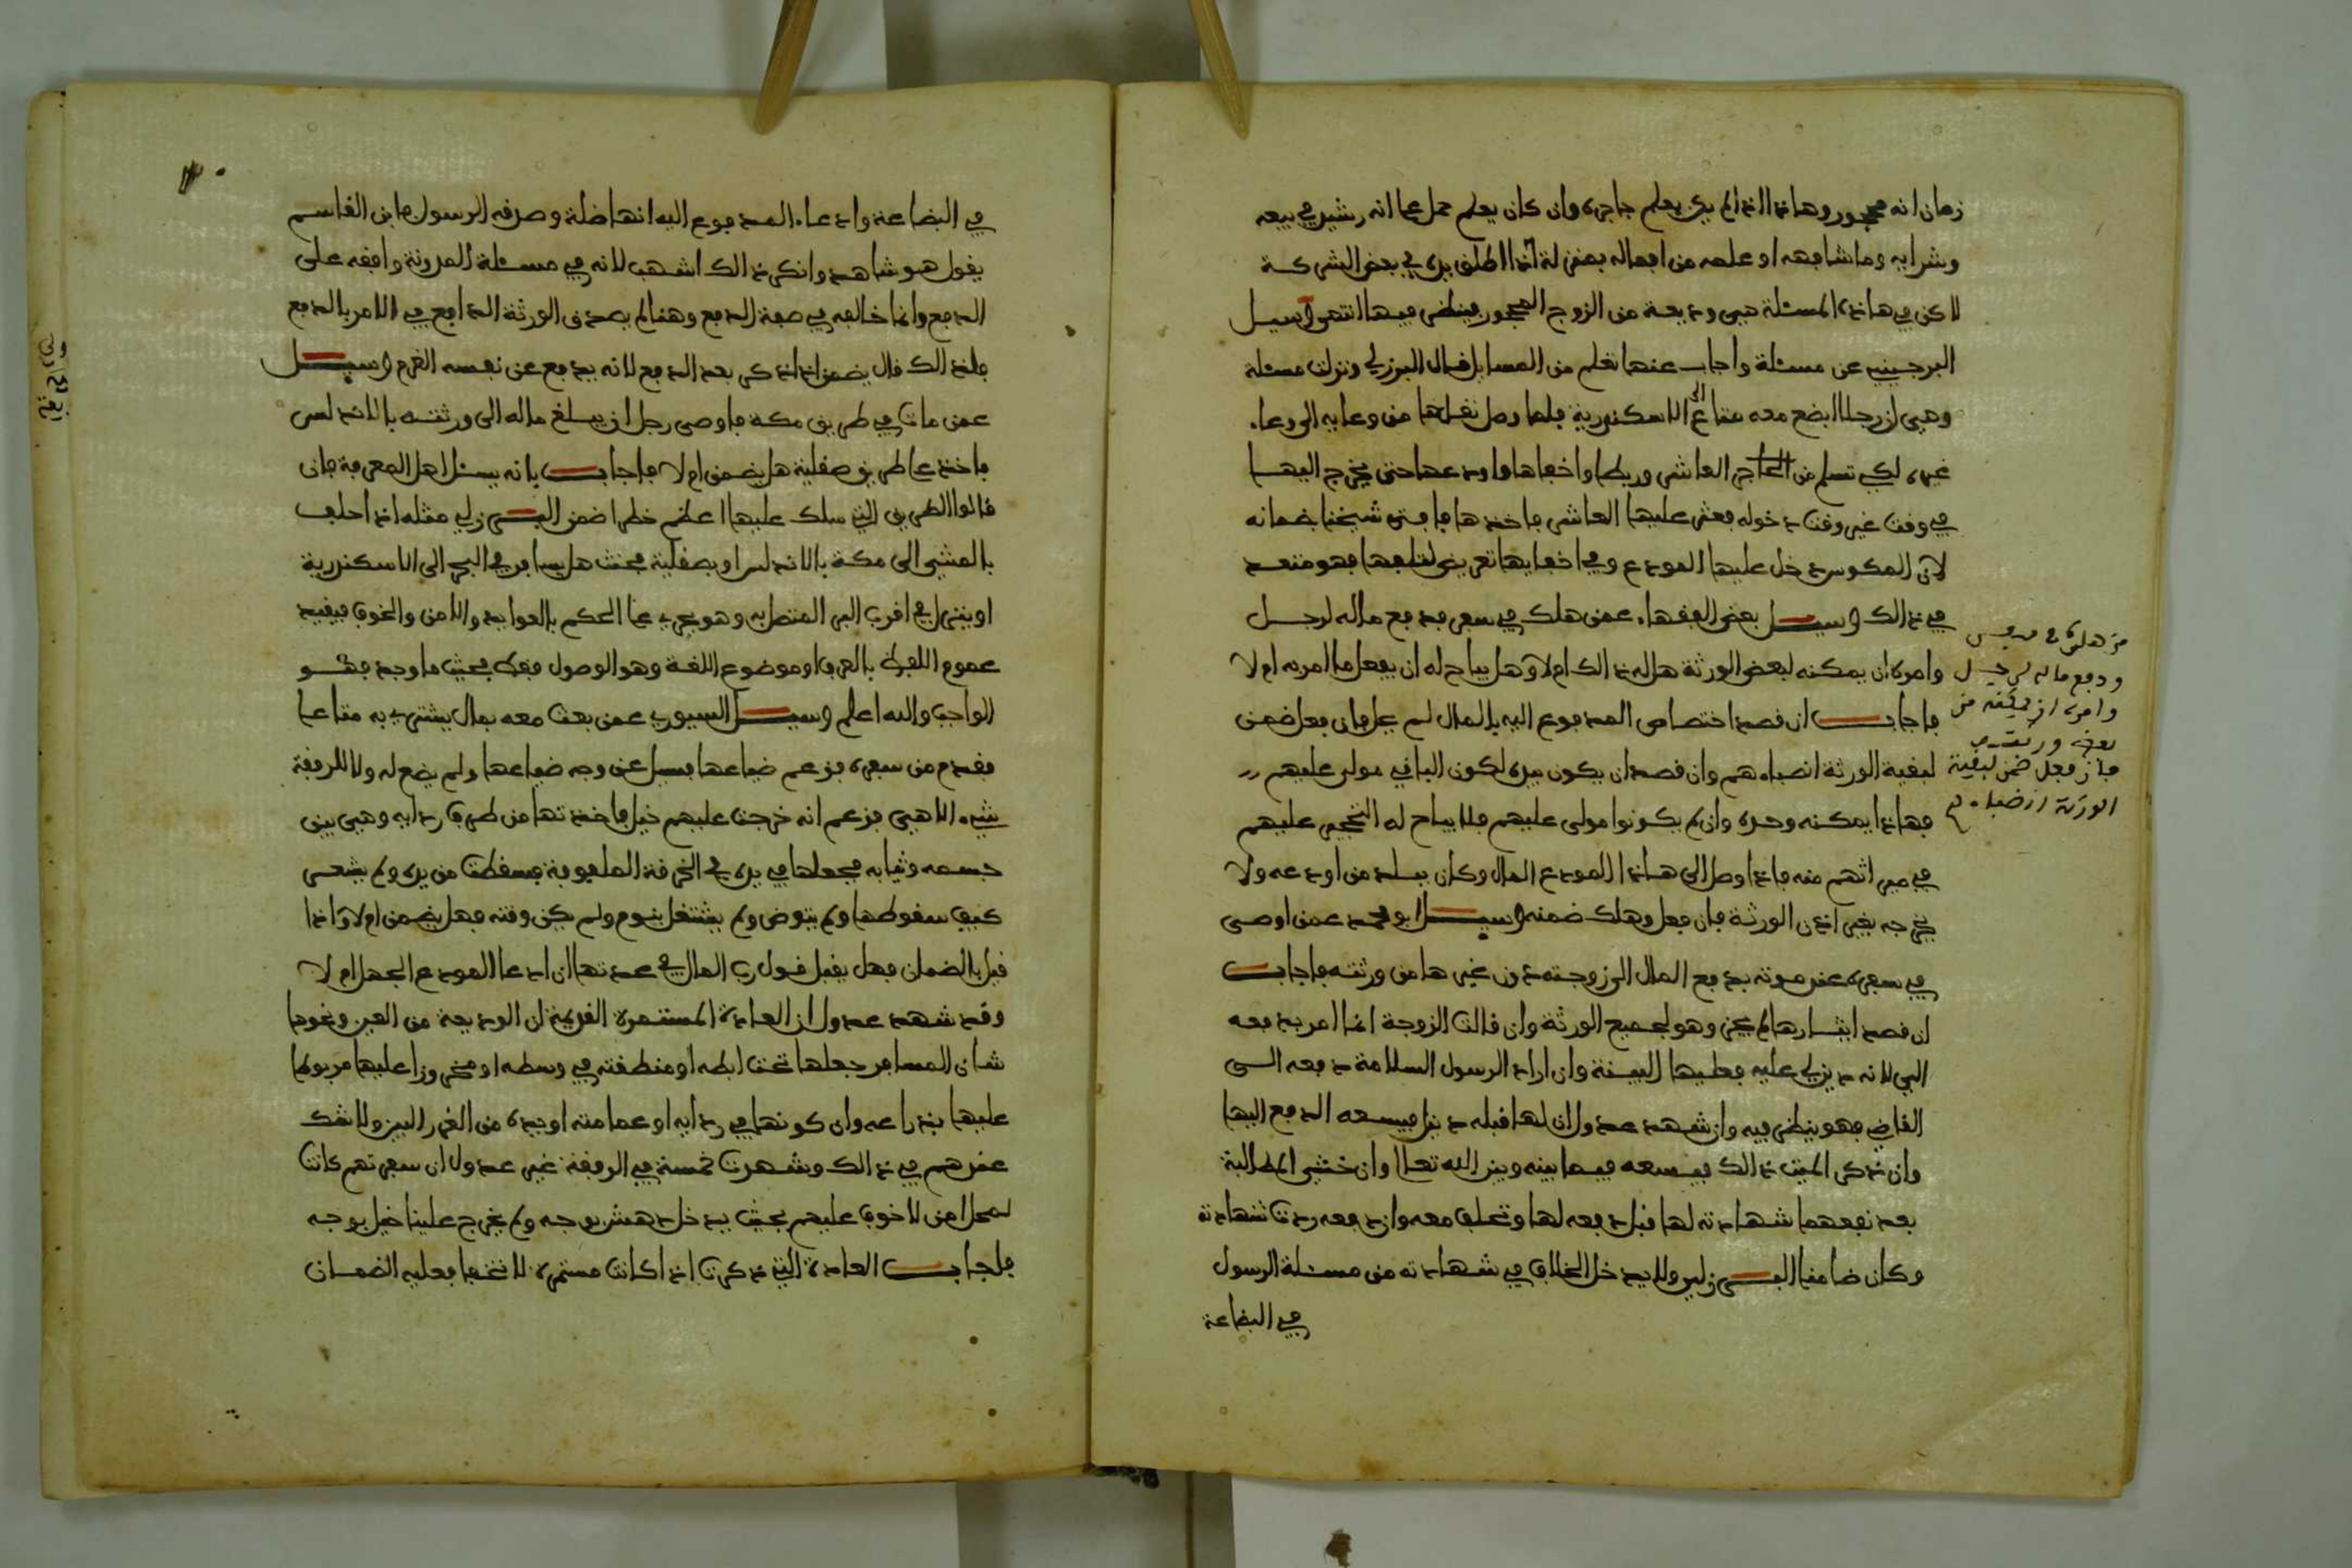 زمان انه محجور وهاذا اذا لم يكن يعلم حاجره وان كان يعلم حمل على انه رشيد في بيعه
وشرايه وما شابهه او علمه من افعاله بمنزلة اذا اطلق يده في بعض الشركة
لاكن في هاذه المسئلة هي وديعة من الزوج المحجور فينظر فيها انتهى وسيل
البرجيني عن مسئلة واجاب عنها تعلم من المسايل قال البرزلي ونزلت مسئلة
وهي ان رجلا ابضع معه متاع الى الاسكندرية فلما وصل نقلها من وعايه الى وعاء
غيره لكي تسلم من العاشر وربطها واخفاها واودعها حتى يخرج اليها
في وقت غير وقت دخوله فعثر عليها العاشر فاخذها فافتى شيخنا بضمانه
لان المكوس دخل عليها المودع وفي اخفايها تعريض لتلفها فهو متعد
في ذالك وسيل بعض الفقهاء عمن هلك في سفر فدفع ماله لرجل
وامره ان يمكنه لبعض الورثة هل له ذالك ام لا وهل يباح له ان يفعل ما امر به ام لا
فاجاب ان قصد اختصاص المدفوع اليه بالمال لم يجز فان فعل ضمن
لبقية الورثة انصباءهم وان قصد ان يكون بيده لكون الباقي مولى عليهم
فهاذا يمكنه وحده وان لم يكونوا مولى عليهم فلا يباح له التحجير عليهم
في ميراثهم منه فاذا وصل الى هاذا المودع المال وكان ببلد من اودعه ولا
يخرجه بغير اذن الورثة فان فعل وهلك ضمنه وسيل ابو محمد عمن اوصى
في سفره عند موته بدفع المال الى زوجته دون غيرها من ورثته فاجاب
ان قصد ايثارها لم يجز وهو لجميع الورثة وان قالت الزوجة انما امر بدفعه
الي لانه دين لي عليه فعليها البينة وان اراد الرسول السلامة دفعه الى
القاضي فهو ينظر فيه وان شهد عدول ان لها قبله دين فيسعه الدفع اليها
وان ذكر الميت ذالك فيسعه فيما بينه وبين الله تعالى وان خشي المطالبة
بعد نفعهما شهادته لها قبل دفعه لها وتحلف معه وان دفعه ردت شهادته
وكان ضامنا البرزلي ولا يدخل الخلاف في شهادته من مسئلة الرسول
في البضاعة
من هلك في سفر
ودفع ماله لرجل
وامره ان يمكنه من
بعض ورثته
فان فعل ضمن لبقية
الورثة انصباءهم
في البضاعة وادعاء المدفوع اليه انها صلة وصدقه الرسول فابن القاسم
يقول هو شاهد وانكر ذالك اشهب لانه في مسئلة المدونة وافقه على
الدفع وانما خالفه في صفة الدفع وهنا لم يصدق الورثة الدافع في الامر بالدفع
فلذالك قال يضمن اذا ذكر بعد الدفع لانه يدفع عن نفسه الغرم وسيل
عمن مات في طريق مكة فاوصى رجل ان يبلغ ماله الى ورثته بالاندلس
فاخذ على طريق صقلية هل يضمن ام لا فاجاب بانه يسئل اهل المعرفة فان
قالوا الطريق التي سلك عليها اعظم خطرا ضمن البرزلي مثله اذا حلف
بالمشي الى مكة بالاندلس او بصقلية فحنث هل يسافر في البحر الى الاسكندرية
او ينزل في اقرب البر المتصل به وهو يجري على الحكم بالعوايد والامن والخوف فيقيد
عموم اللفظ بالعرف او موضوع اللغة وهو الوصول فقط بحيث ما وجد فهو
الواجب والله اعلم وسيل السيوري عمن بعث معه بمال يشتري به متاعا
فقدم من سفره فزعم ضياعها فسيل عن وجه ضياعها ولم يضع له ولا للرفقة
شيء الا هي فزعم انه خرجت عليهم خيل فاخذتها من طرف ردايه وهي بين
جسمه وثيابه فجعلها في يده في الخرقة الملفوفة فسقطت من يده ولم يشعر
كيف سقوطها ولم يتوض ولم يشتغل بنوم ولم يكن وقته فهل يضمن ام لا واذا
قيل بالضمان فهل يقبل قول رب المال في عدتها ان ادعا المودع الجهل ام لا
وقد شهد عدول ان العادة المستمرة القديمة ان الوديعة من العين ونحوها
شان المسافر جعلها تحت ابطه او منطقته في وسطه او مخروزا عليها مربوطا
عليها بذراعه وان كونها في ردايه او عمامته او يده من الغرر البين ولا شك
عندهم في ذالك وشهدت خمسة في الرفقة غير عدول ان سفرتهم كانت
لمحل امن لا خوف عليهم بحيث يدخل دهش بوجه ولم يخرج علينا خيل بوجه
فاجاب العادة التي ذكرت اذا كانت مستمرة لا تختفا فعليه الضمان